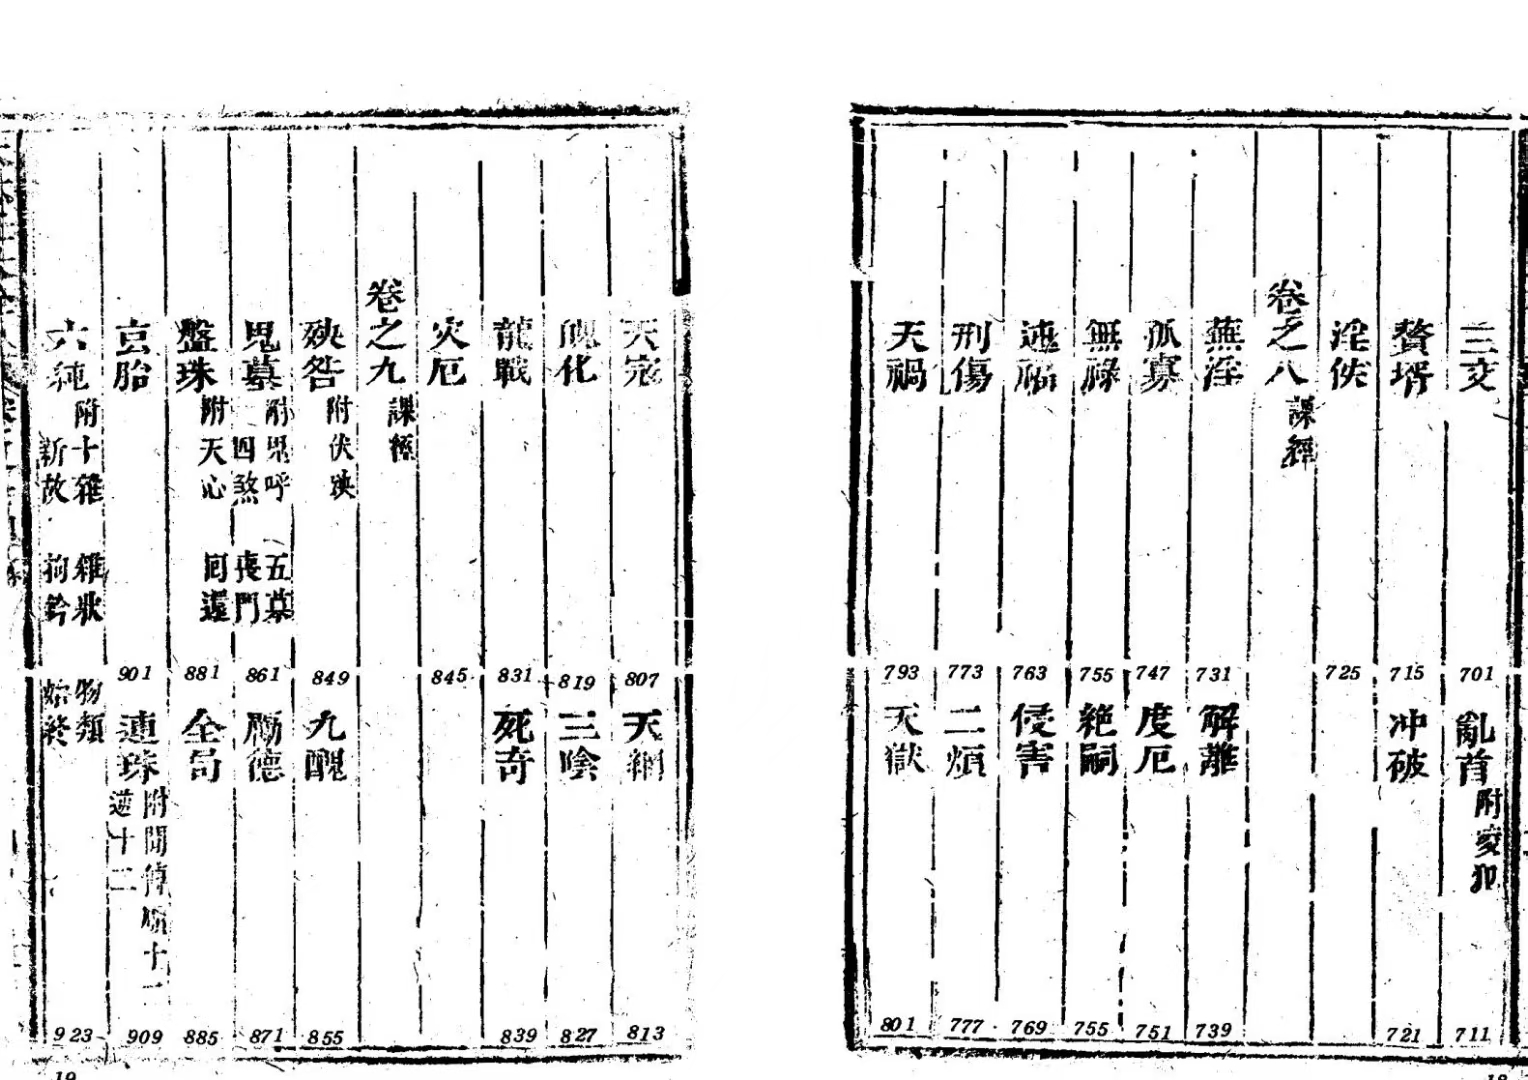 三交 701 亂首 附夌犯 711
贅壻 715 冲破 721
淫佚 725
卷之八 課經
蕪淫 731 解離 739
孤寡 747 度厄 751
無祿 755 絶嗣 755
迍福 763 侵害 769
刑傷 773 二煩 777
天禍 793 天獄 801
18
天寇 807 天網 813
魄化 819 三陰 827
龍戰 831 死奇 839
灾厄 845
卷之九 課經
殃咎 附伏殃 849 九醜 855
鬼墓 附鬼呼 五墓 四煞 喪門 861 勵德 871
盤珠 附天心 囘還 881 全局 885
玄胎 901 連珠 附間傳順十二 逆十二 909
六純 附十雜 雜狀 物類 新故 始終 923
19